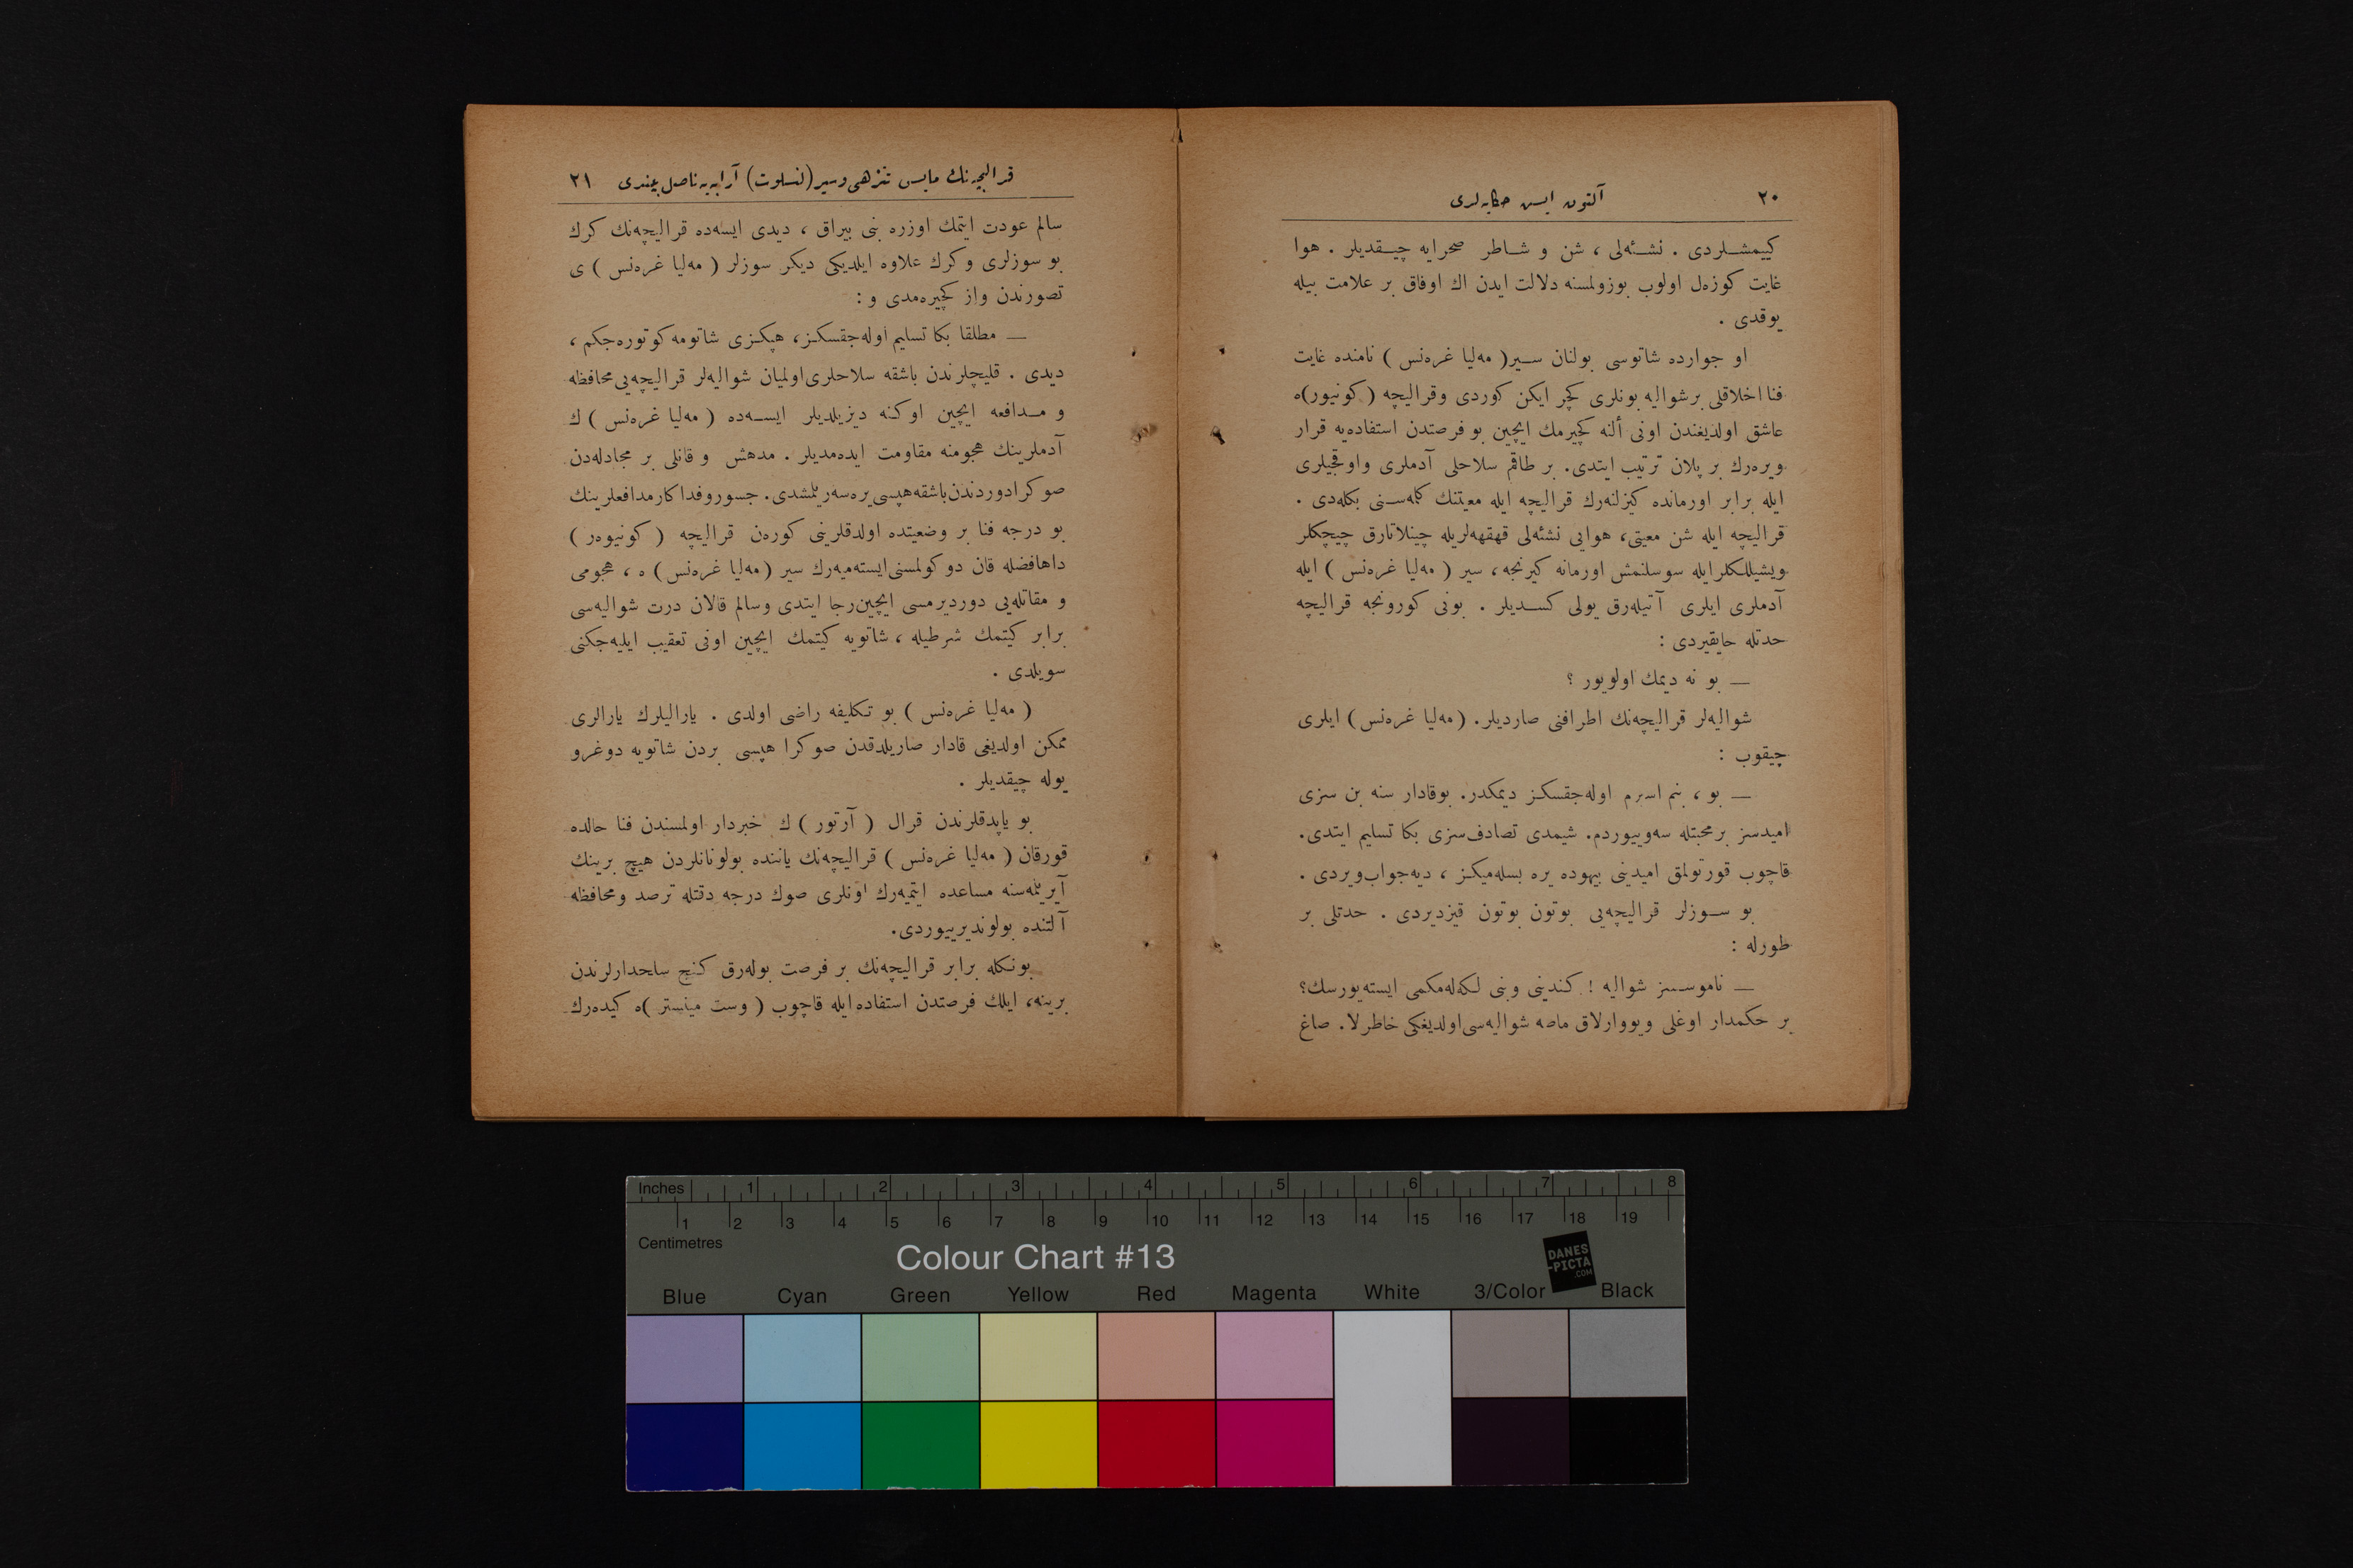 ٢٠ آلتون ایس حكایه لری
كییمشلردی . نشئه‌لی ، شن و شاطر صحرایه چیقدیلر . هوا
غایت كوزه‌ل اولوب بوزولمسنه دلالت ایدن اك اوفاق بر علامت بیله
یوقدی .
او جوارده شاتوسی بولنان سیر( مه‌لیا غره‌نس ) نامنده غایت
فنا اخلاقلی برشوالیه بونلری كچر ایكن كوردی وقرالیچه ( كونیور)ه
عاشق اولدیغندن اونی ألنه كچیرمك ایچین بو فرصتدن استفاده‌یه قرار
ویره‌رك بر پلان ترتیب ایتدی. بر طاقم سلاحلی آدملری واوقجیلری
ایله برابر اورمانده كیزلنه‌رك قرالیچه ایله معیتنك كلمه‌سنی بكله‌دی .
قرالیچه ایله شن معیتی، هوایی نشئه‌لی قهقهه‌لریله چینلاتارق چیچكلر
ویشیللكلرایله سوسلنمش اورمانه كیرنجه، سیر ( مه‌لیا غره‌نس ) ایله
آدملری ایلری آتیله‌رق یولی كسدیلر . بونی كورونجه قرالیچه
حدتله حایقیردی :
— بو نه دیمك اولویور ؟
شوالیه‌لر قرالیچه‌نك اطرافنی صاردیلر. (مه‌لیا غره‌نس) ایلری
چیقوب :
— بو ، بنم اسیرم اوله‌جقسكز دیمكدر. بوقادار سنه بن سزی
امیدسز برمحبتله سه‌وییوردم. شیمدی تصادف سزی بكا تسلیم ایتدی.
قاچوب قورتولمق امیدینی بیهوده یره بسله‌میكز ، دیه جواب ویردی .
بو سوزلر قرالیچه‌یی بوتون بوتون قیزدیردی . حدتلی بر
طورله :
— ناموسسز شوالیه ! كندینی وبنی لكه‌له‌مكمی ایسته‌یورسك؟
بر حكمدار اوغلی ویووارلاق ماصه شوالیه‌سی اولدیغكی خاطرلا. صاغ
قرالیچه نك مایس تنزهی وسیر (لنسلوت) آرابه‌یه ناصل بیندی ٢١
سالم عودت ایتمك اوزره بنی بیراق ، دیدی ایسه‌ده قرالیچه‌نك كرك
بو سوزلری وكرك علاوه ایلدیكی دیكر سوزلر ( مه‌لیا غره‌نس ) ی
تصورندن واز كچیره‌مدی و :
— مطلقا بكا تسلیم اوله‌جقسكز، هپكزی شاتومه كوتوره‌جكم ،
دیدی . قلیچلرندن باشقه سلاحلری اولمیان شوالیه‌لر قرالیچه‌یی محافظه
و مدافعه ایچین اوكنه دیزیلدیلر ایسه‌ده ( مه‌لیا غره‌نس ) ك
آدملرینك هجومنه مقاومت ایده‌مدیلر . مدهش و قانلی بر مجادله‌دن
صوكرا دوردندن باشقه هپسی یره سه‌ریلمشدی. جسور وفداكار مدافعلرینك
بو درجه فنا بر وضعیتده اولدقلرینی كوره‌ن قرالیچه ( كونیوه‌ر )
داها فضله قان دوكولمسنی ایسته‌میه‌رك سیر (مه‌لیا غره‌نس) ه ، هجومی
و مقاتله‌یی دوردیرمسی ایچین رجا ایتدی وسالم قالان درت شوالیه‌سی
برابر كیتمك شرطیله ، شاتویه كیتمك ایچین اونی تعقیب ایلیه‌جكنی
سویلدی .
( مه‌لیا غره‌نس ) بو تكلیفه راضی اولدی . یارالیلرك یارالری
ممكن اولدیغی قادار صاریلدقدن صوكرا هپسی بردن شاتویه دوغرو
یوله چیقدیلر .
بو یاپدقلرندن قرال ( آرتور ) ك خبردار اولمسندن فنا حالده
قورقان ( مه‌لیا غره‌نس ) قرالیچه‌نك یاننده بولونانلردن هیچ برینك
آیریلمه‌سنه مساعده ایتمیه‌رك اونلری صوك درجه دقتله ترصد ومحافظه
آلتنده بولوندیرییوردی.
بونكله برابر قرالیچه‌نك بر فرصت بوله‌رق كنج سلحدارلرندن
برینه، ایلك فرصتدن استفاده ایله قاچوب ( وست مینستر )ه كیده‌رك
Inches 1 2 3 4 5 6 7 8
1 2 3 4 5 6 7 8 9 10 11 12 13 14 15 16 17 18 19
Centimetres
Colour Chart #13
DANES
-PICTA
.COM
Blue Cyan Green Yellow Red Magenta White 3/Color Black